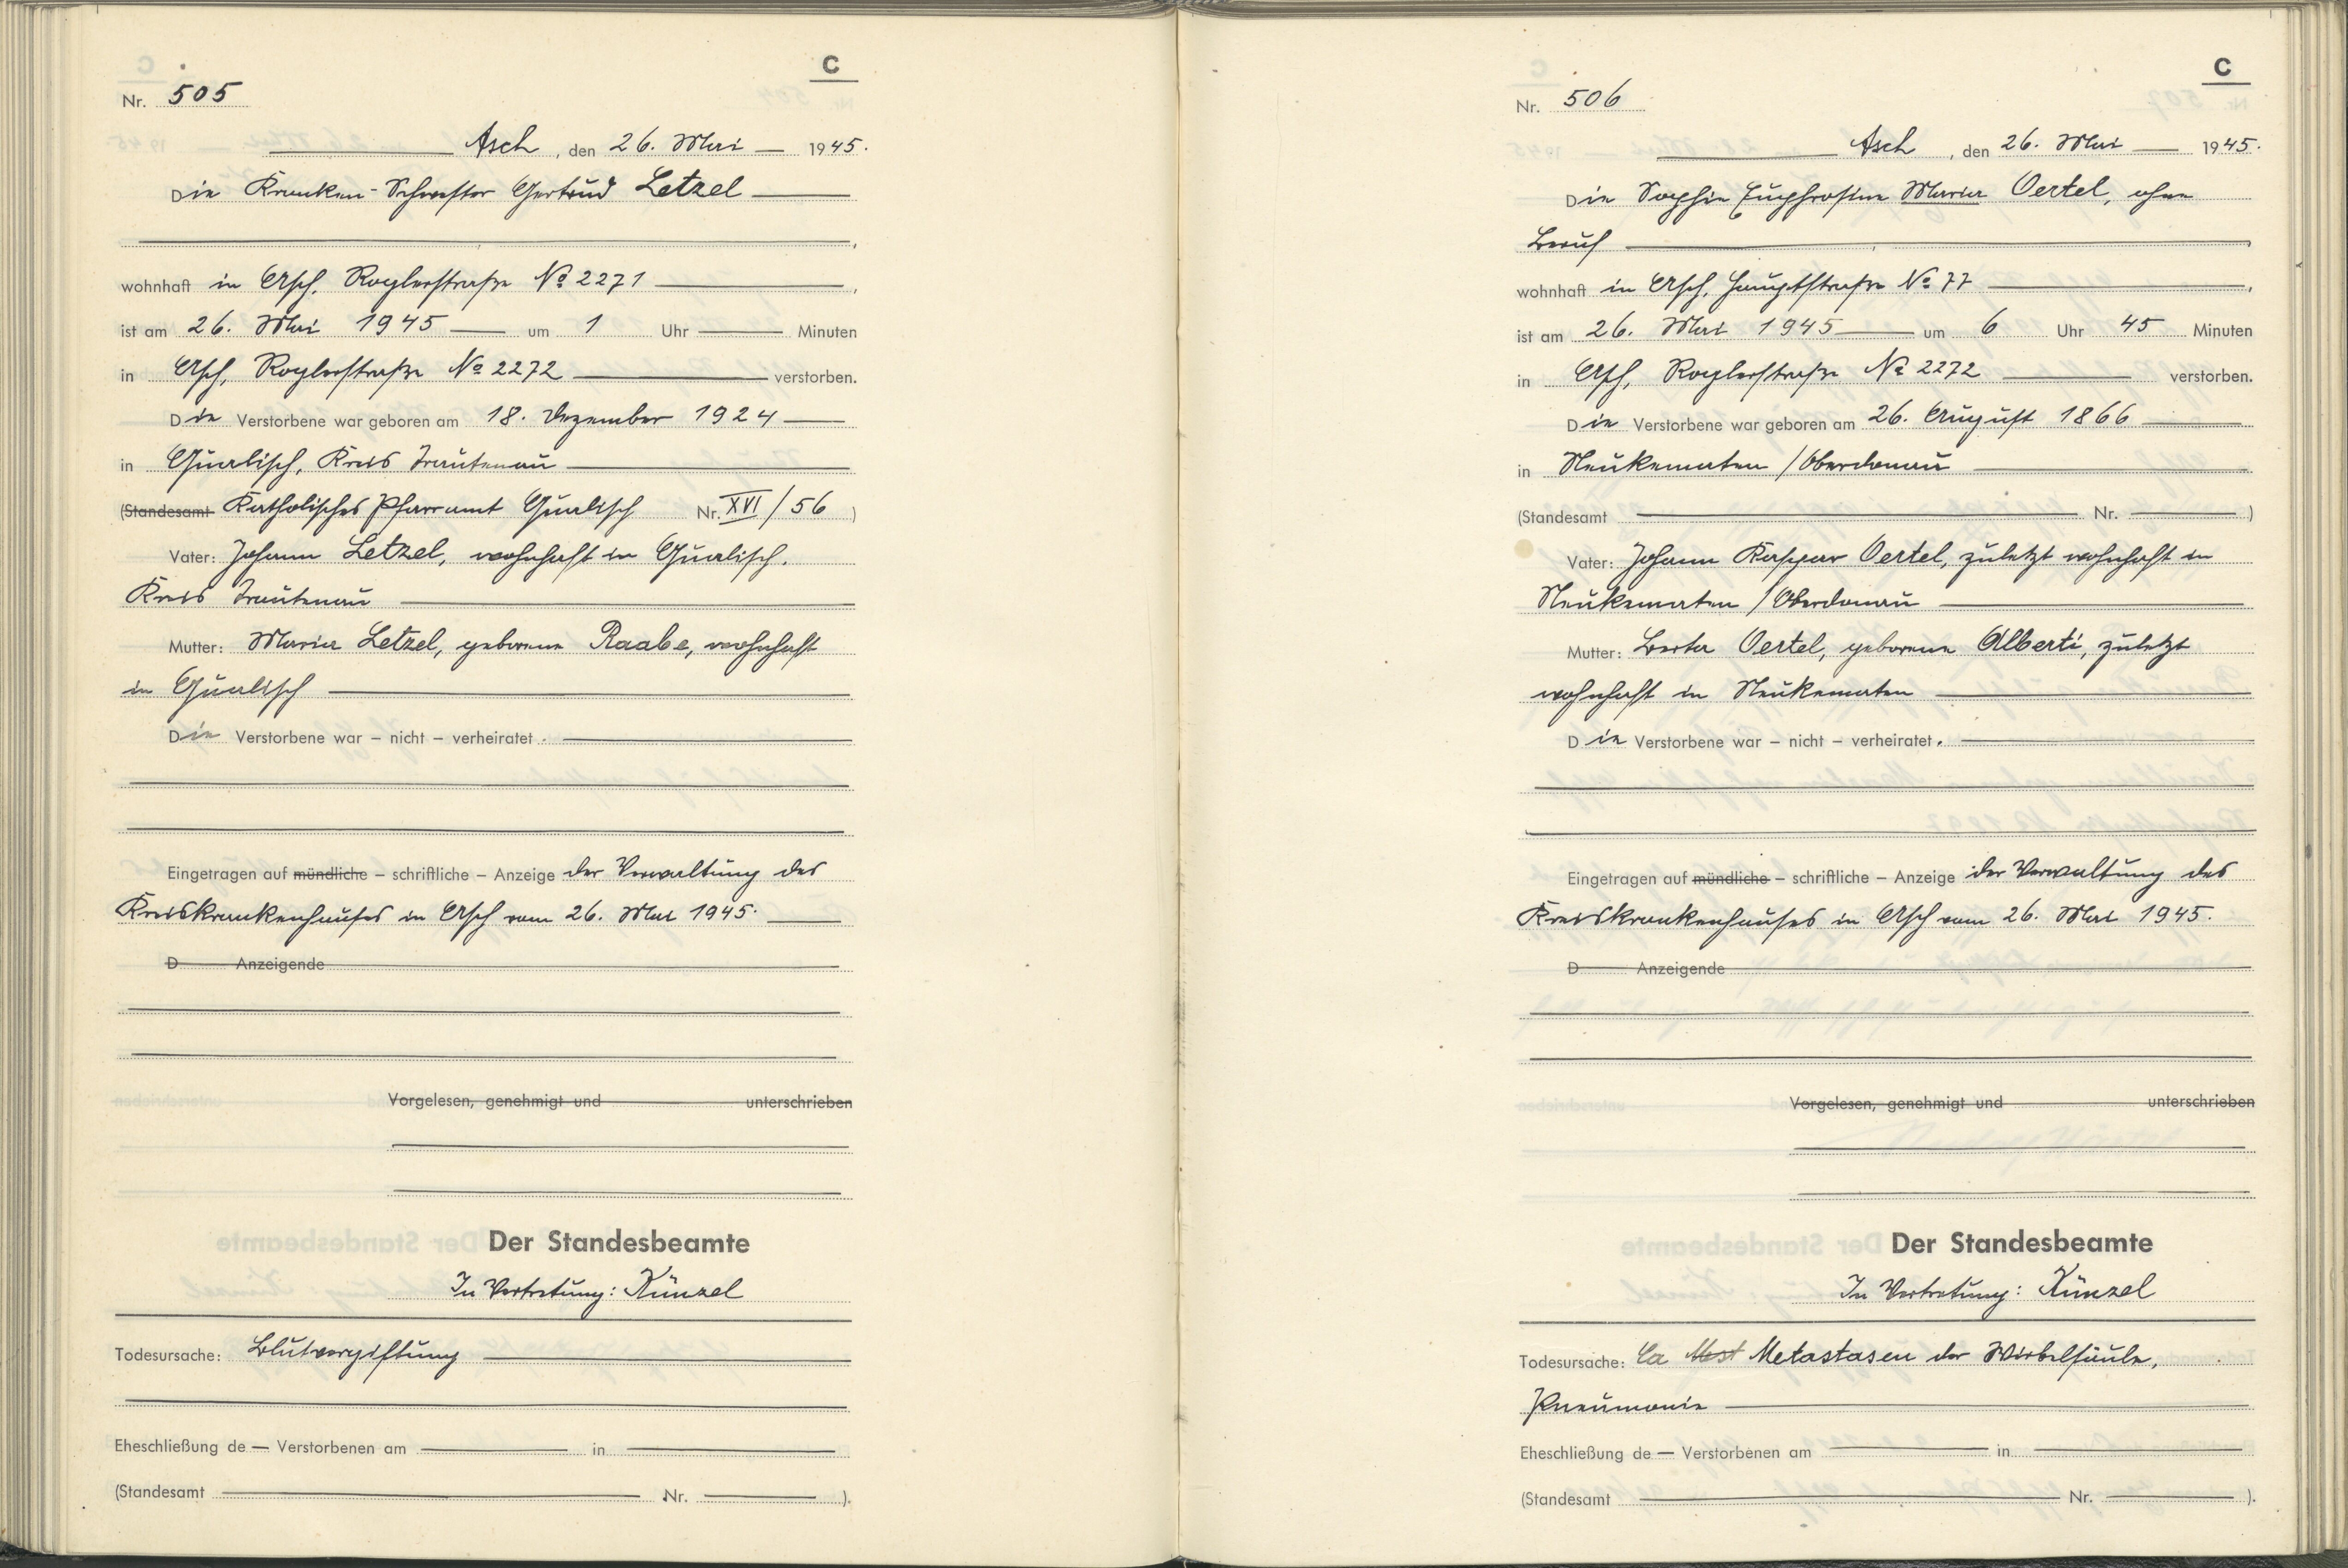 C
Nr. 505
Asch, den 26. Mai 1945.
Die Kranken-Schwester Gertrud Letzel
wohnhaft in Asch, Roglerstraße № 2271,
ist am 26. Mai 1945 um 1 Uhr Minuten
in Asch, Roglerstraße № 2272 verstorben.
Die Verstorbene war geboren am 18. Dezember 1924
in Qualisch, Kreis Trautenau
(Standesamt Katholisches Pfarramt Qualisch Nr. XVI/56)
Vater: Johann Letzel, wohnhaft in Qualisch,
Kreis Trautenau
Mutter: Maria Letzel, geborene Raabe, wohnhaft
in Qualisch
Die Verstorbene war – nicht – verheiratet.
Eingetragen auf mündliche – schriftliche – Anzeige der Verwaltung des
Kreiskrankenhauses in Asch vom 26. Mai 1945.
D Anzeigende
Vorgelesen, genehmigt und unterschrieben
Der Standesbeamte
In Vertretung: Künzel
Todesursache: Blutvergiftung
Eheschließung de – Verstorbenen am in
(Standesamt Nr. ).
C
Nr. 506
Asch, den 26. Mai 1945.
Die Sophie Euphrosine Maria Oertel, ohne
Beruf,
wohnhaft in Asch, Hauptstraße № 77,
ist am 26. Mai 1945 um 6 Uhr 45 Minuten
in Asch, Roglerstraße № 2272 verstorben.
Die Verstorbene war geboren am 26. August 1866
in Neukematen / Oberdonau
(Standesamt Nr. )
Vater: Johann Kaspar Oertel, zuletzt wohnhaft in
Neukematen / Oberdonau
Mutter: Berta Oertel, geborene Alberti, zuletzt
wohnhaft in Neukematen
Die Verstorbene war – nicht – verheiratet.
Eingetragen auf mündliche – schriftliche – Anzeige der Verwaltung des
Kreiskrankenhauses in Asch vom 26. Mai 1945.
D Anzeigende
Vorgelesen, genehmigt und unterschrieben
Der Standesbeamte
In Vertretung: Künzel
Todesursache: Ca Mest Metastasen der Wirbelsäule,
Pneumonie
Eheschließung de – Verstorbenen am in
(Standesamt Nr. ).